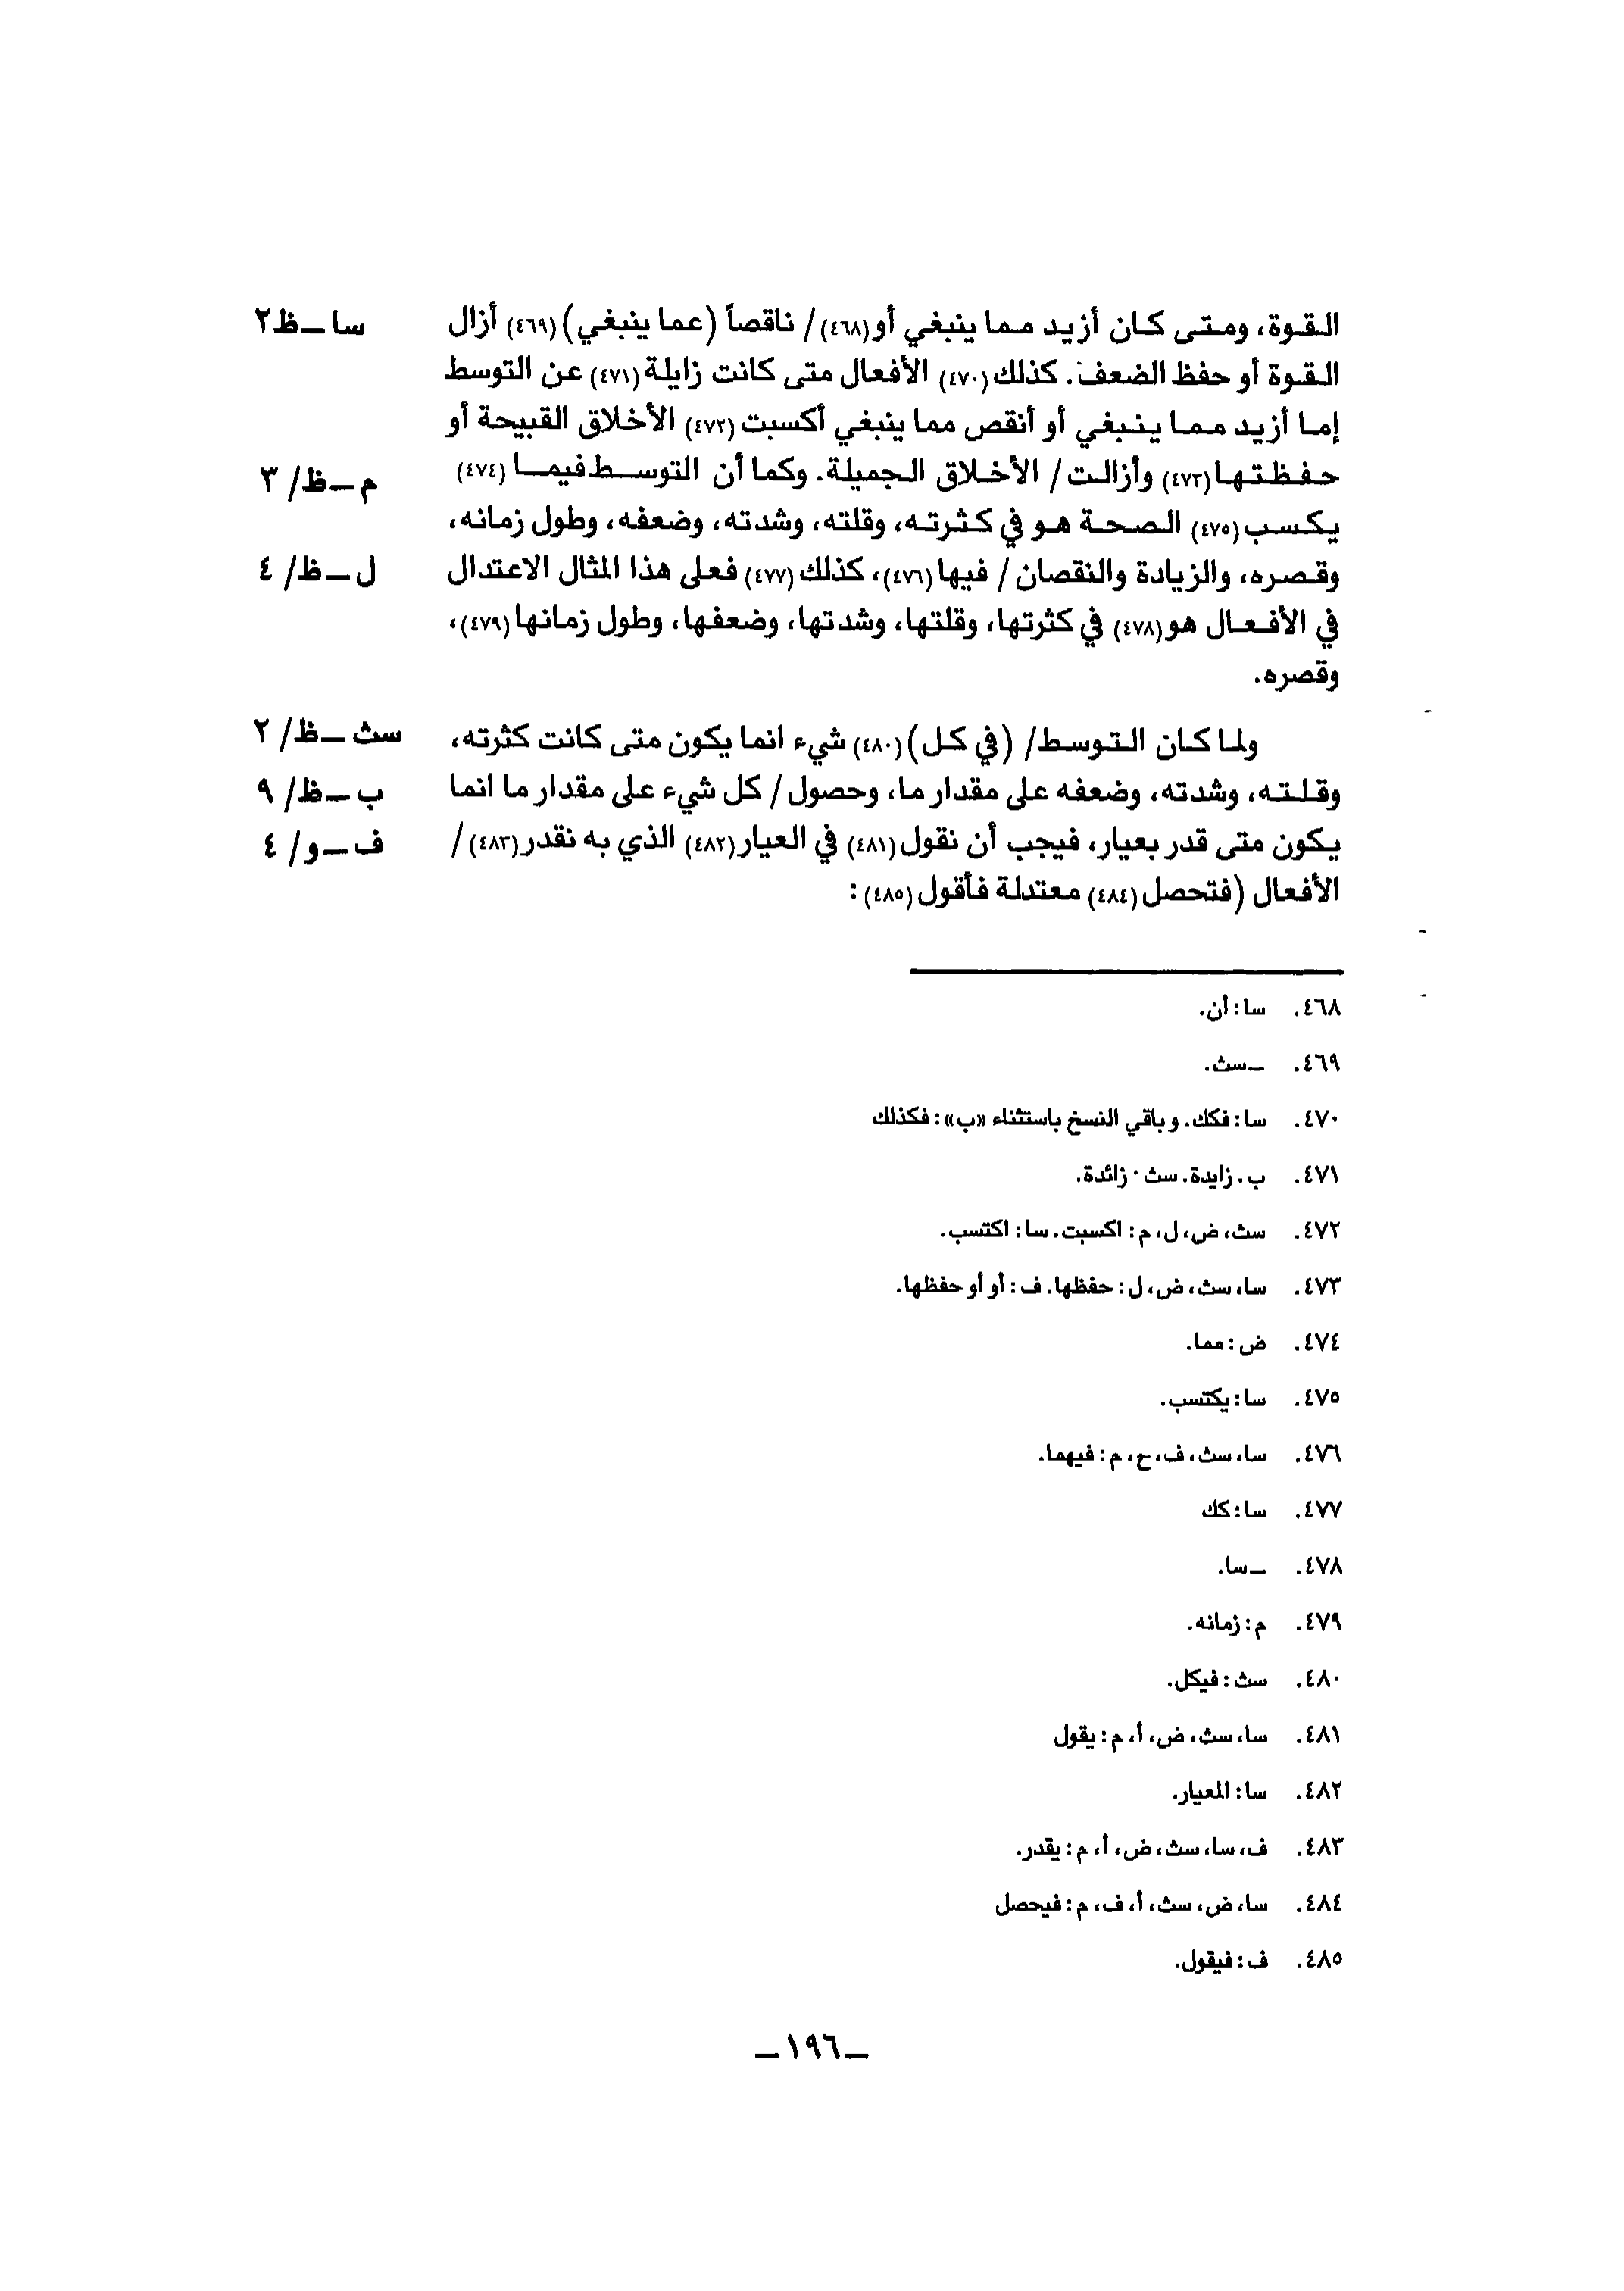 القوة، ومتى كان أزيد مما ينبغي أو(٤٦٨)/ ناقصاً (عما ينبغي)(٤٦٩) أزال
سا ــ ظ٢
القوة أو حفظ الضعف. كذلك(٤٧٠) الأفعال متى كانت زايلة(٤٧١) عن التوسط
إما أزيد مما ينبغي أو أنقص مما ينبغي أكسبت(٤٧٢) الأخلاق القبيحة أو
حفظتها(٤٧٣) وأزالت/ الأخلاق الجميلة. وكما أن التوسط فيما (٤٧٤)
م ــ ظ/ ٣
يكسب(٤٧٥) الصحة هو في كثرته، وقلته، وشدته، وضعفه، وطول زمانه،
وقصره، والزيادة والنقصان/ فيها(٤٧٦)، كذلك(٤٧٧) فعلى هذا المثال الاعتدال
ل ــ ظ/ ٤
في الأفعال هو(٤٧٨) في كثرتها، وقلتها، وشدتها، وضعفها، وطول زمانها(٤٧٩)،
وقصره.
ولما كان التوسط/ (في كل)(٤٨٠) شيء انما يكون متى كانت كثرته،
سث ــ ظ/ ٢
وقلته، وشدته، وضعفه على مقدار ما، وحصول/ كل شيء على مقدار ما انما
ب ــ ظ/ ٩
يكون متى قدر بعيار، فيجب أن نقول(٤٨١) في العيار(٤٨٢) الذي به نقدر(٤٨٣)/
ف ــ و/ ٤
الأفعال (فتحصل(٤٨٤) معتدلة فأقول(٤٨٥):
٤٦٨. سا: أن.
٤٦٩. ــ سث.
٤٧٠. سا: فكك. وباقي النسخ باستثناء «ب»: فكذلك
٤٧١. ب. زايدة. سث· زائدة.
٤٧٢. سث، ض، ل، م: اكسبت. سا: اكتسب.
٤٧٣. سا، سث، ض، ل: حفظها. ف: أو أو حفظها.
٤٧٤. ض: مما.
٤٧٥. سا: يكتسب.
٤٧٦. سا، سث، ف، ح، م: فيهما.
٤٧٧. سا: كك
٤٧٨. ــ سا.
٤٧٩. م: زمانه.
٤٨٠. سث: فيكل.
٤٨١. سا، سث، ض، أ، م: يقول
٤٨٢. سا: المعيار.
٤٨٣. ف، سا، سث، ض، أ، م: يقدر.
٤٨٤. سا، ض، سث، أ، ف، م: فيحصل
٤٨٥. ف: فيقول.
ــ ١٩٦ ــ